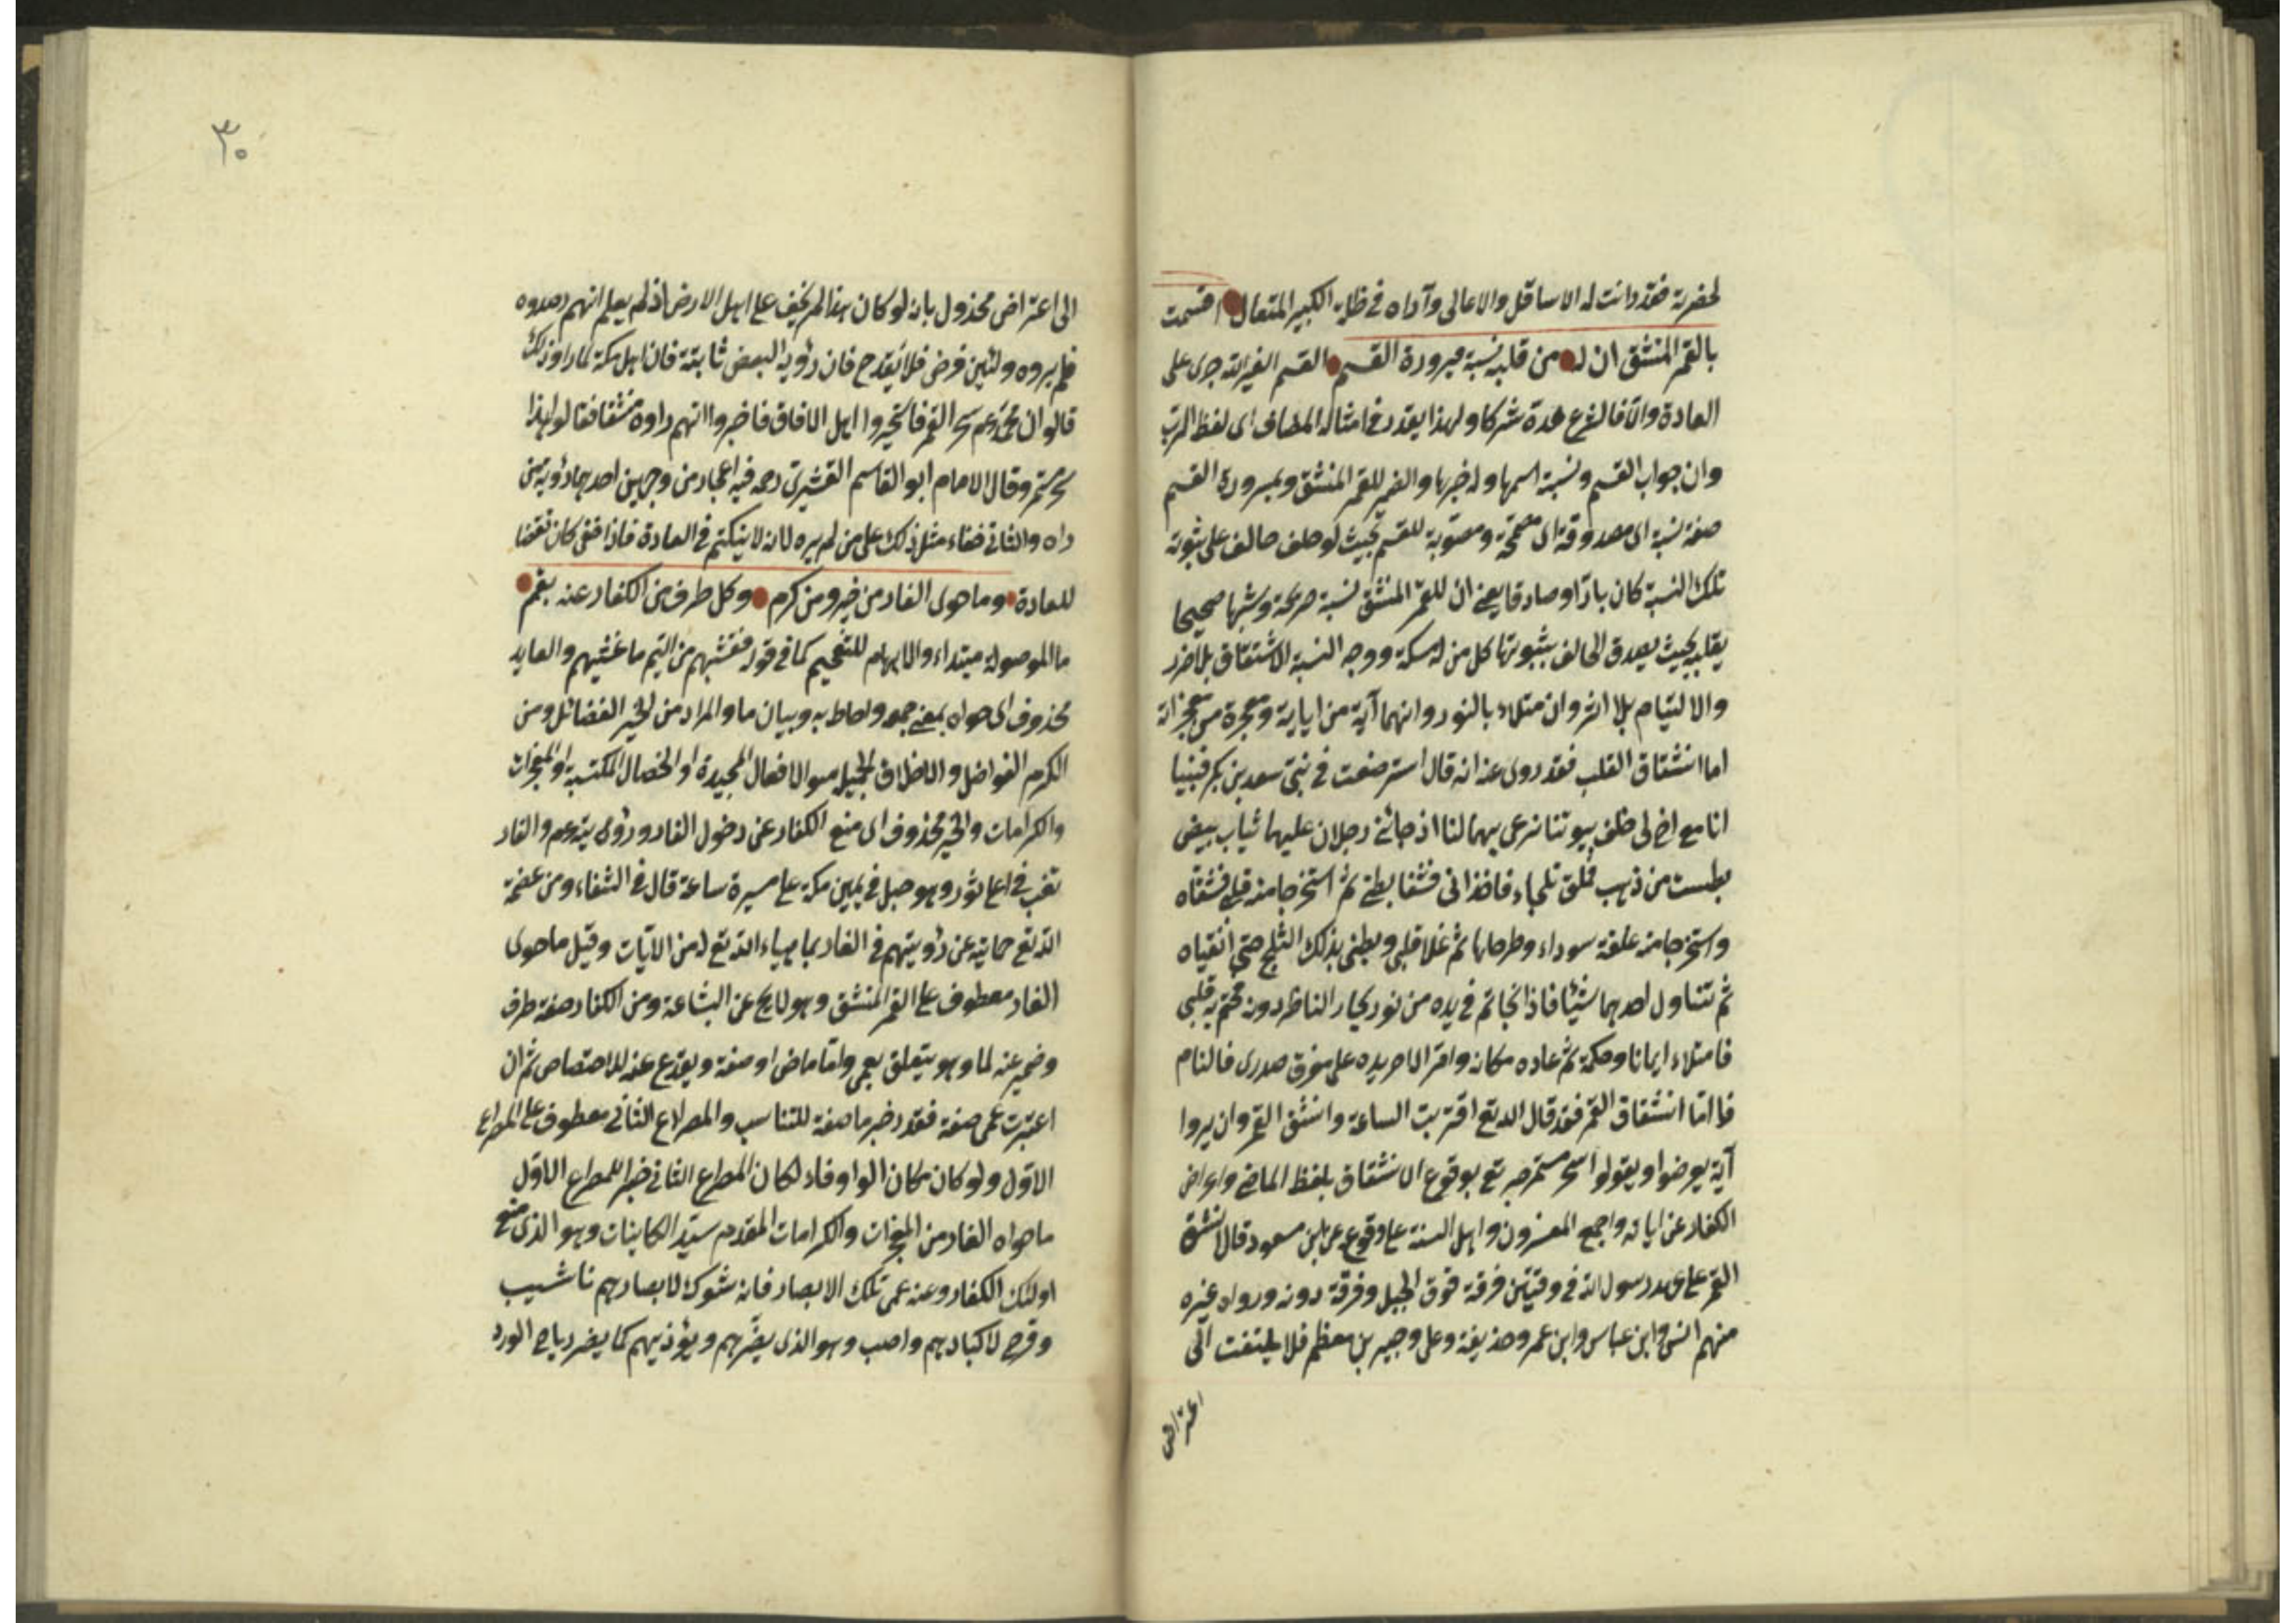 لحضرته فقد دانت له الاسافل والاعالي وآداه في ظله الكبير المتعال اقسمت
بالقمر المنشق ان له من قلبه نسبة مبرورة القسم القسم لغير الله جرى على
العادة والا فالشرع عده شركا ولهذا يقدر في امثاله المضاف اى لفظ الرب
وان جواب القسم ونسبة اسمها وله خبرها والضمير للقمر المنشق ومبرورة القسم
صفة نسبة اى مصدوقة اى مصححة ومصوبة للقسم بحيث لو حلف حالف على ثبوته
تلك النسبة كان بارا وصادقا يعنى ان للقمر المنشق نسبة صريحة وشبها صحيحا
بقلبه بحيث يصدق الحالف بثبوتها كل من له مسكة ووجه النسبة الانشقاق بلا ضرر
والالتيام بلا اثر وان متلاء بالنور وانهما آية من اياته ومعجزة من معجزاته
اما انشقاق القلب فقد روى عنه انه قال استرضعت في بنى سعد بن بكر فبينا
انا مع اخ لى خلف بيوتنا نرعى بهما لنا اذ جائنى رجلان عليهما ثياب بيض
بطست من ذهب ملئ ثلجاء فاخذانى فشقا بطنى ثم استخرجا منه قلبى فشقاه
واستخرجا منه علقة سوداء وطرحاها ثم غسلا قلبى وبطنى بذلك الثلج حتى انقياه
ثم تناول احدهما شيئا فاذا بخاتم في يده من نور يحار الناظر دونه فختم به قلبى
فامتلاء ايمانا وحكمة ثم عاده مكانه وامر الاخر يده على مفرق صدرى فالتام
فاما انشقاق القمر فقد قال الله تع اقتربت الساعة وانشق القمر وان يروا
آية يعرضوا ويقولوا سحر مستمر خبر تع بوقوع الانشقاق بلفظ الماضى واعراض
الكفار عن اياته واجمع المفسرون واهل السنة على وقوعه عن ابن مسعود قال انشق
القمر على عهد رسول الله في وقتين فرقة فوق الجبل وفرقة دونه ورواه غيره
منهم انس وابن عباس وابن عمر وحذيفة وعلى وجبير بن مطعم فلا يلتفت الى
اعتراض
٣٠
الى اعتراض مخذول بانه لو كان هذا لم يخف على اهل الارض اذ لم يعلم انهم رصدوه
فلم يروه ولئن فرض فلا يقدح فان رؤية البعض ثابتة فان اهل مكة لما راو ذلك
قالو ان محمد عم سحر القمر فاستخبروا اهل الافاق فاخبروا انهم راوه منشقا فقالو لهذا
سحر مستمر وقال الامام ابو القاسم القشيرى رحمه فيه اعجاز من وجهين احدهما رؤية من
راه والثانى خفاء مثل ذلك على من لم يره لانه لا ينكتم في العادة فاذا خفى كان نقضا
للعادة وما حوى الغار من خير ومن كرم وكل طرف من الكفار عنه بغم
ما الموصولة مبتداء والابهام للتفخيم كما في قوله فغشيهم من اليم ما غشيهم والعايد
محذوف اى حواه بمعنى جمعه واحاط به وبيان ما والمراد من الخير الفضائل ومن
الكرم الفواضل والاخلاق الجميلة والافعال الحميدة او الخصال المكتسبة والمعجزات
والكرامات والخبر محذوف اى منع الكفار عن دخول الغار ورؤية عم والغار
نقب في اعلى ثور وهو جبل في يمين مكة على مسيرة ساعة قال في الشفاء ومن عصمة
الله تع حمايته عن رؤيتهم في الغار بما هياء الله تع له من الايات وقيل ما حوى
الغار معطوف على القمر المنشق وهو لا يخ عن البشاعة ومن الكفار صفة طرف
وضمير عنه لما وهو يتعلق بعمى واما ماض او صفة ويقدع عنه للاختصاص ثم ان
اعتبرت عمى صفة فقدر خبر ما صفة للتناسب والمصراع الثانى معطوف على المصراع
الاول ولو كان مكان الواو فاء لكان المصراع الثانى خبرا للمصراع الاول
ما حواه الغار من المعجزات والكرامات المقدم سيد الكاينات وهو الذى منع
اولئك الكفار وعنه عمى تلك الابصار فانه شوك لابصارهم ناشب
وقرح لاكبادهم واصب وهو الذى يضرهم ويؤذيهم كما يضر رياح الورد